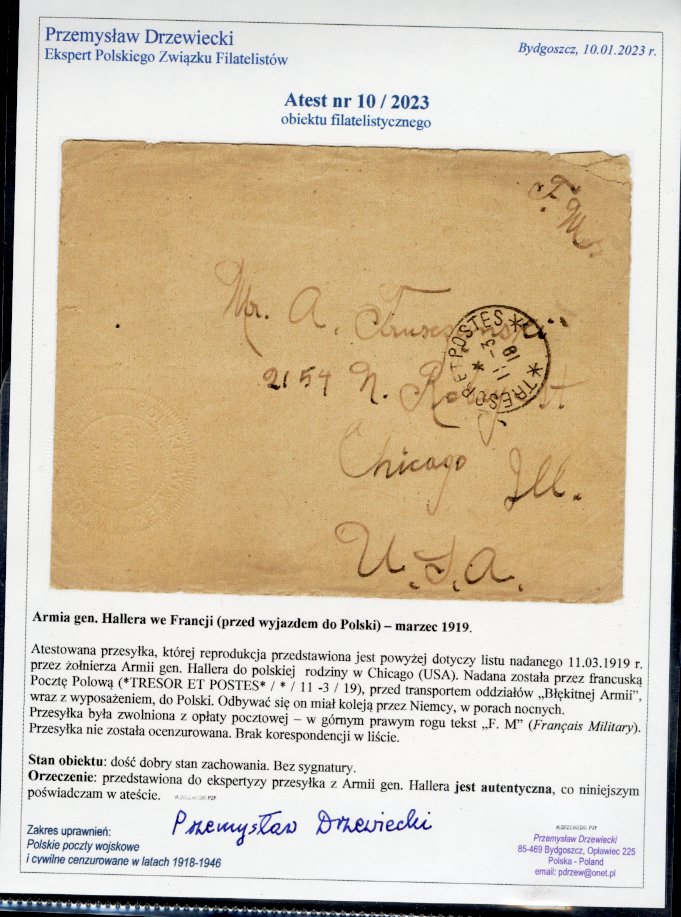 Przemysław Drzewiecki
Ekspert Polskiego Związku Filatelistów
Bydgoszcz, 10.01.2023 r.
Atest nr 10 / 2023
obiektu filatelistycznego
F. M.
Mr. A.
*TRESOR ET POSTES*
11 - 3
19
*
2154 N. St
Chicago Ill.
U.S.A.
Armia gen. Hallera we Francji (przed wyjazdem do Polski) – marzec 1919.
Atestowana przesyłka, której reprodukcja przedstawiona jest powyżej dotyczy listu nadanego 11.03.1919 r.
przez żołnierza Armii gen. Hallera do polskiej rodziny w Chicago (USA). Nadana została przez francuską
Pocztę Polową (*TRESOR ET POSTES* / * / 11 -3 / 19), przed transportem oddziałów „Błękitnej Armii”,
wraz z wyposażeniem, do Polski. Odbywać się on miał koleją przez Niemcy, w porach nocnych.
Przesyłka była zwolniona z opłaty pocztowej – w górnym prawym rogu tekst „F. M” (Français Military).
Przesyłka nie została ocenzurowana. Brak korespondencji w liście.
Stan obiektu: dość dobry stan zachowania. Bez sygnatury.
Orzeczenie: przedstawiona do ekspertyzy przesyłka z Armii gen. Hallera jest autentyczna, co niniejszym
poświadczam w ateście.
Przemysław Drzewiecki
Zakres uprawnień:
Polskie poczty wojskowe
i cywilne cenzurowane w latach 1918-1946
P.DRZEWIECKI PZF
Przemysław Drzewiecki
85-469 Bydgoszcz, Opławiec 225
Polska - Poland
email: pdrzew@onet.pl